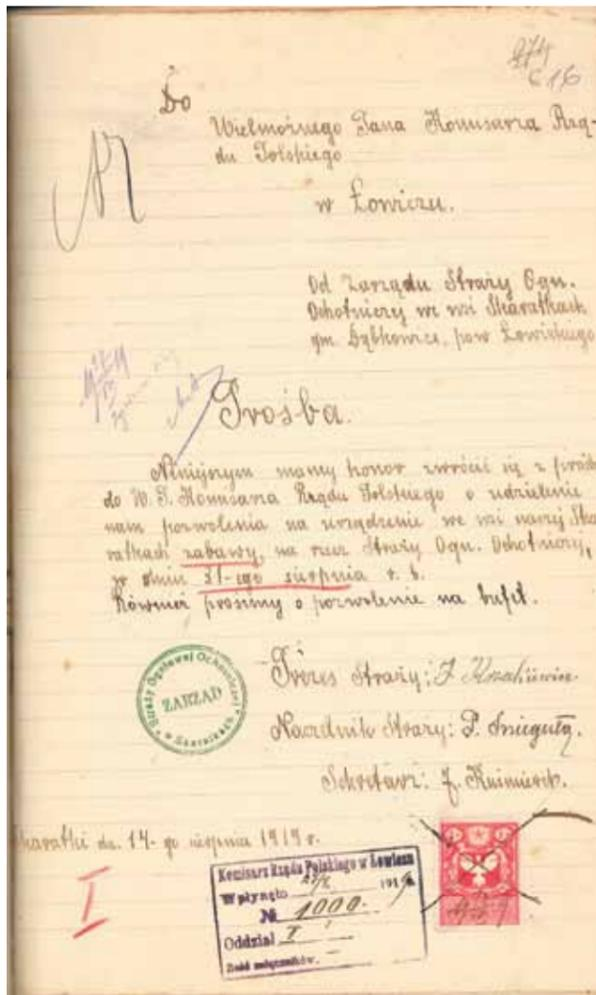 274
C 16
Do
Wielmożnego Pana Komisarza Rzą-
du Polskiego
w Łowiczu.
Od Zarządu Straży Ogn.
Ochotniczej we wsi Skaratkach
gm. Dąbkowice, pow. Łowickiego
Prośba.
Niniejszym mamy honor zwrócić się z prośb
do W. P. Komisarza Rządu Polskiego o udzielenie
nam pozwolenia na urządzenie we wsi naszej Ska
ratkach zabawy, na rzecz Straży Ogn. Ochotniczej,
w dniu 31-ego sierpnia r. b.
Również prosimy o pozwolenie na bufet.
Straży Ogniowej Ochotniczej
ZARZĄD
w Skaratkach
Prezes Straży: J.
Naczelnik Straży: P. Śnieguła.
Sekretarz: J. Kaźmierch.
Skaratki dn. 14-go sierpnia 1919 r.
I
Komisarz Rządu Polskiego w Łowiczu
Wpłynęło 1919
№ 1000.
Oddział I
Ilość załączników.